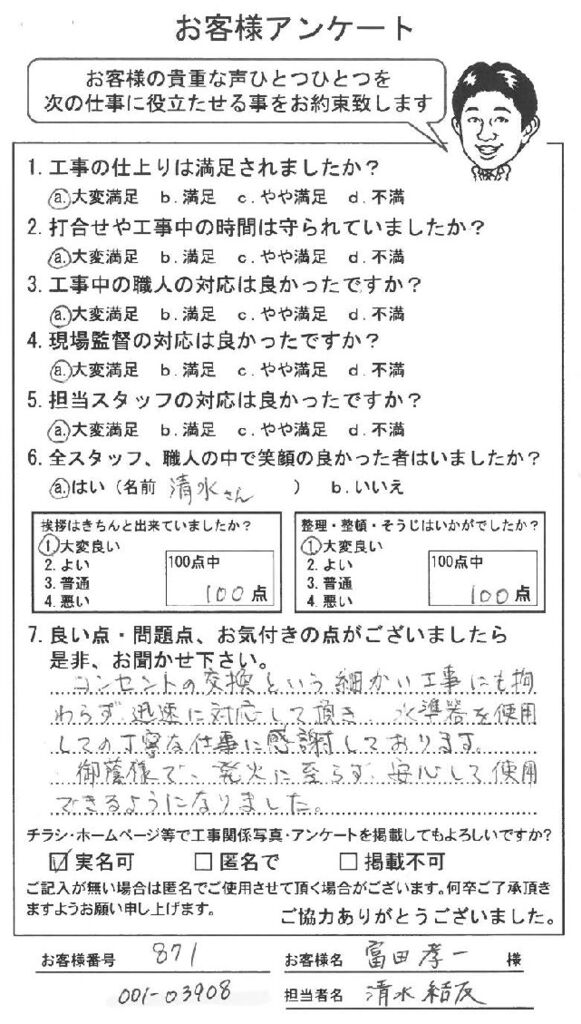 お客様アンケート
お客様の貴重な声ひとつひとつを
次の仕事に役立たせる事をお約束致します
1.工事の仕上りは満足されましたか?
a.大変満足 b.満足 c.やや満足 d.不満
2.打合せや工事中の時間は守られていましたか?
a.大変満足 b.満足 c.やや満足 d.不満
3.工事中の職人の対応は良かったですか?
a.大変満足 b.満足 c.やや満足 d.不満
4.現場監督の対応は良かったですか?
a.大変満足 b.満足 c.やや満足 d.不満
5.担当スタッフの対応は良かったですか?
a.大変満足 b.満足 c.やや満足 d.不満
6.全スタッフ、職人の中で笑顔の良かった者はいましたか?
a.はい(名前 清水さん ) b.いいえ
挨拶はきちんと出来ていましたか?
1.大変良い
2.よい
3.普通
4.悪い
100点中
100点
整理・整頓・そうじはいかがでしたか?
1.大変良い
2.よい
3.普通
4.悪い
100点中
100点
7.良い点・問題点、お気付きの点がございましたら
是非、お聞かせ下さい。
コンセントの交換という細かい工事にも拘
わらず迅速に対応して頂き、水準器を使用
しての丁寧な仕事に感謝しております。
御蔭様で、発火に至らず、安心して使用
できるようになりました。
チラシ・ホームページ等で工事関係写真・アンケートを掲載してもよろしいですか?
☑実名可 □匿名で □掲載不可
ご記入が無い場合は匿名でご使用させて頂く場合がございます。何卒ご了承頂き
ますようお願い申し上げます。
ご協力ありがとうございました。
お客様番号 871
お客様名 富田孝一 様
001-03908
担当者名 清水結友